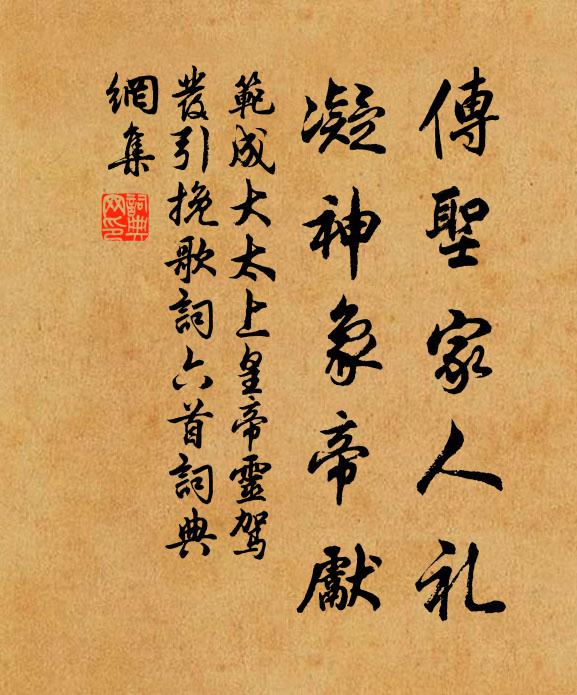 傳聖家人礼
凝神象帝獻
範成大太上皇帝靈駕
發引挽歌詞六首詞典
網集
詞典
网印